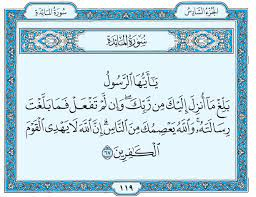 الجزء السادس
سورة المائدة
سورة المائدة
يَا أَيُّهَا الرَّسُولُ
بَلِّغْ مَا أُنزِلَ إِلَيْكَ مِن رَّبِّكَ وَإِن لَّمْ تَفْعَلْ فَمَا بَلَّغْتَ
رِسَالَتَهُ وَاللَّهُ يَعْصِمُكَ مِنَ النَّاسِ إِنَّ اللَّهَ لَا يَهْدِي الْقَوْمَ
الْكَافِرِينَ ٦٧
١١٩